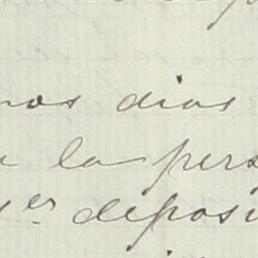 nos dias
a la pers
er deposi